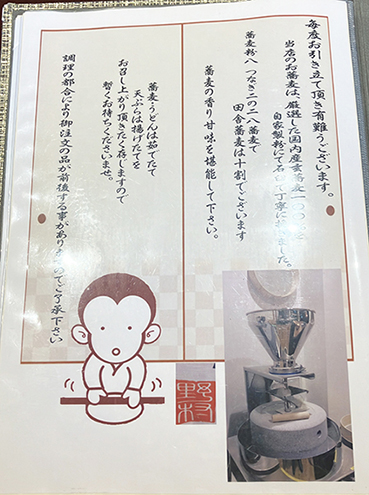 毎度お引き立て頂き有難うございます。
当店のお蕎麦は、厳選した国内産玄蕎麦一〇〇
自家製粉にて石 て丁寧に ました。
蕎麦粉八 つなぎ二の二八蕎麦で
田舎蕎麦は十割でございます
蕎麦の香り甘味を堪能して下さい。
蕎麦・うどんは茹でたて
天ぷらは揚げたてを
お召し上がり頂きたく存じますので
暫くお待ちくださいませ。
調理の都合により御注文の品が前後する事があり のでご了承下さい
野村